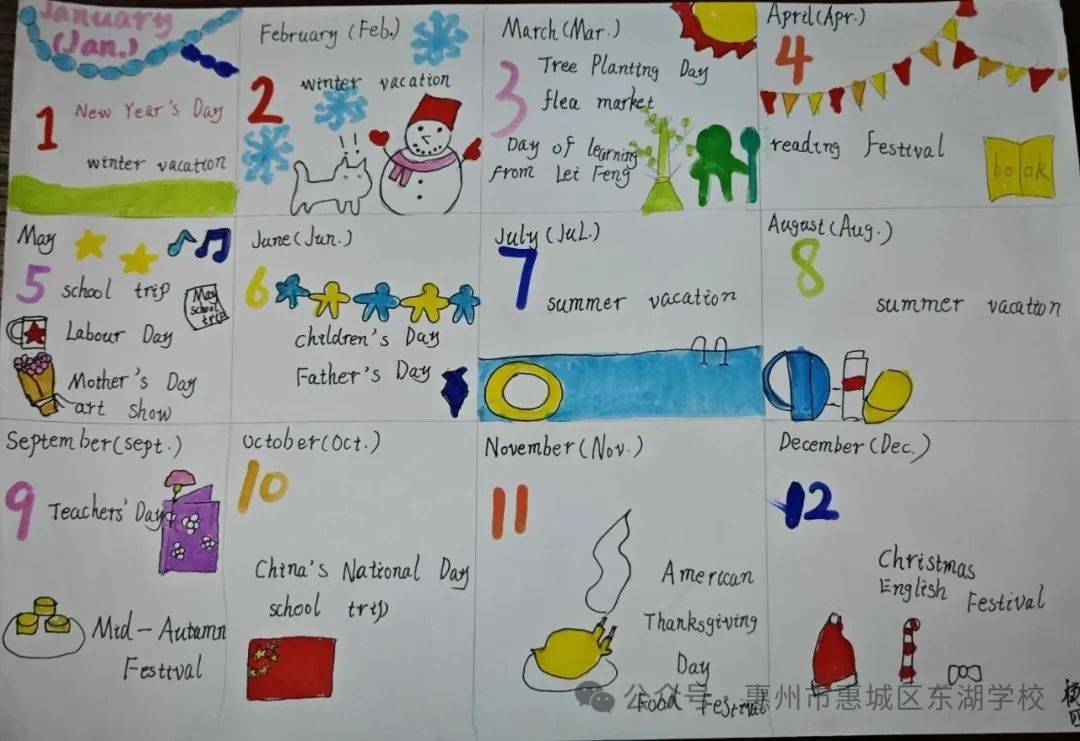 January
(Jan.)
1
New Year's Day
winter vacation
February (Feb.)
2
winter vacation
!!
March (Mar.)
3
Tree Planting Day
flea market
Day of learning
from Lei Feng
April (Apr.)
4
reading Festival
book
May
5
school trip
May
school
trip
Labour Day
Mother's Day
art show
June (Jun.)
6
children's Day
Father's Day
July (JuL.)
7
summer vacation
August (Aug.)
8
summer vacation
September (sept.)
9
Teachers' Day
Mid-Autumn
Festival
October (Oct.)
10
China's National Day
school trip
November (Nov.)
11
American
Thanksgiving
Day
Food Festival
December (Dec.)
12
Christmas
English Festival
公众号 惠州市惠城区东湖学校